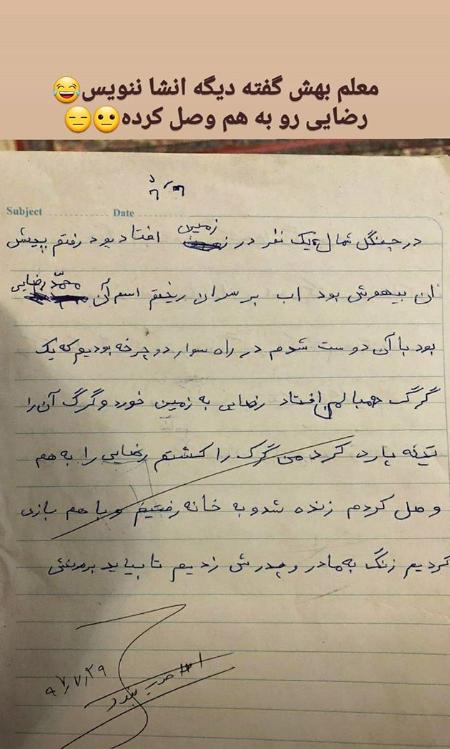 معلم بهش گفته دیگه انشا ننویس😂
رضایی رو به هم وصل کرده😐😑
Subject Date
در جنگل شمال یک نفر در زمین افتاد بود رفتم پیش
آن بیهوش بود اب بر سر ان ریختم اسم آن محمد رضایی
بود با آن دوست شدم در راه سوار دوچرخه بودیم که یک
گرگ دمبالمان افتاد رضایی به زمین خورد و گرگ آن را
تیکه پاره کرد من گرگ را کشتم رضایی را به هم
وصل کردم زنده شد و به خانه رفتیم و با هم بازی
کردیم زنگ به مادر و پدرش زدیم تا بیاید برمنش
۹۷،۷،۲۹